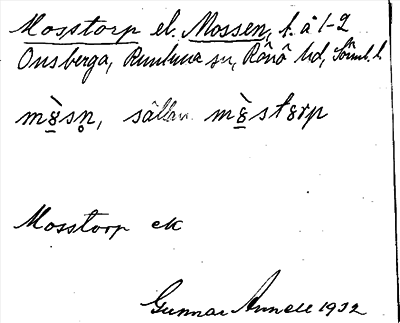 Mosstorp el. Mossen, t. å 1-2
Onsberga, Runtuna sn, Rönö hd, Söml. l.
mòsn̥, sällan mòstørp
Mosstorp ek
Gunnar Annell 1932